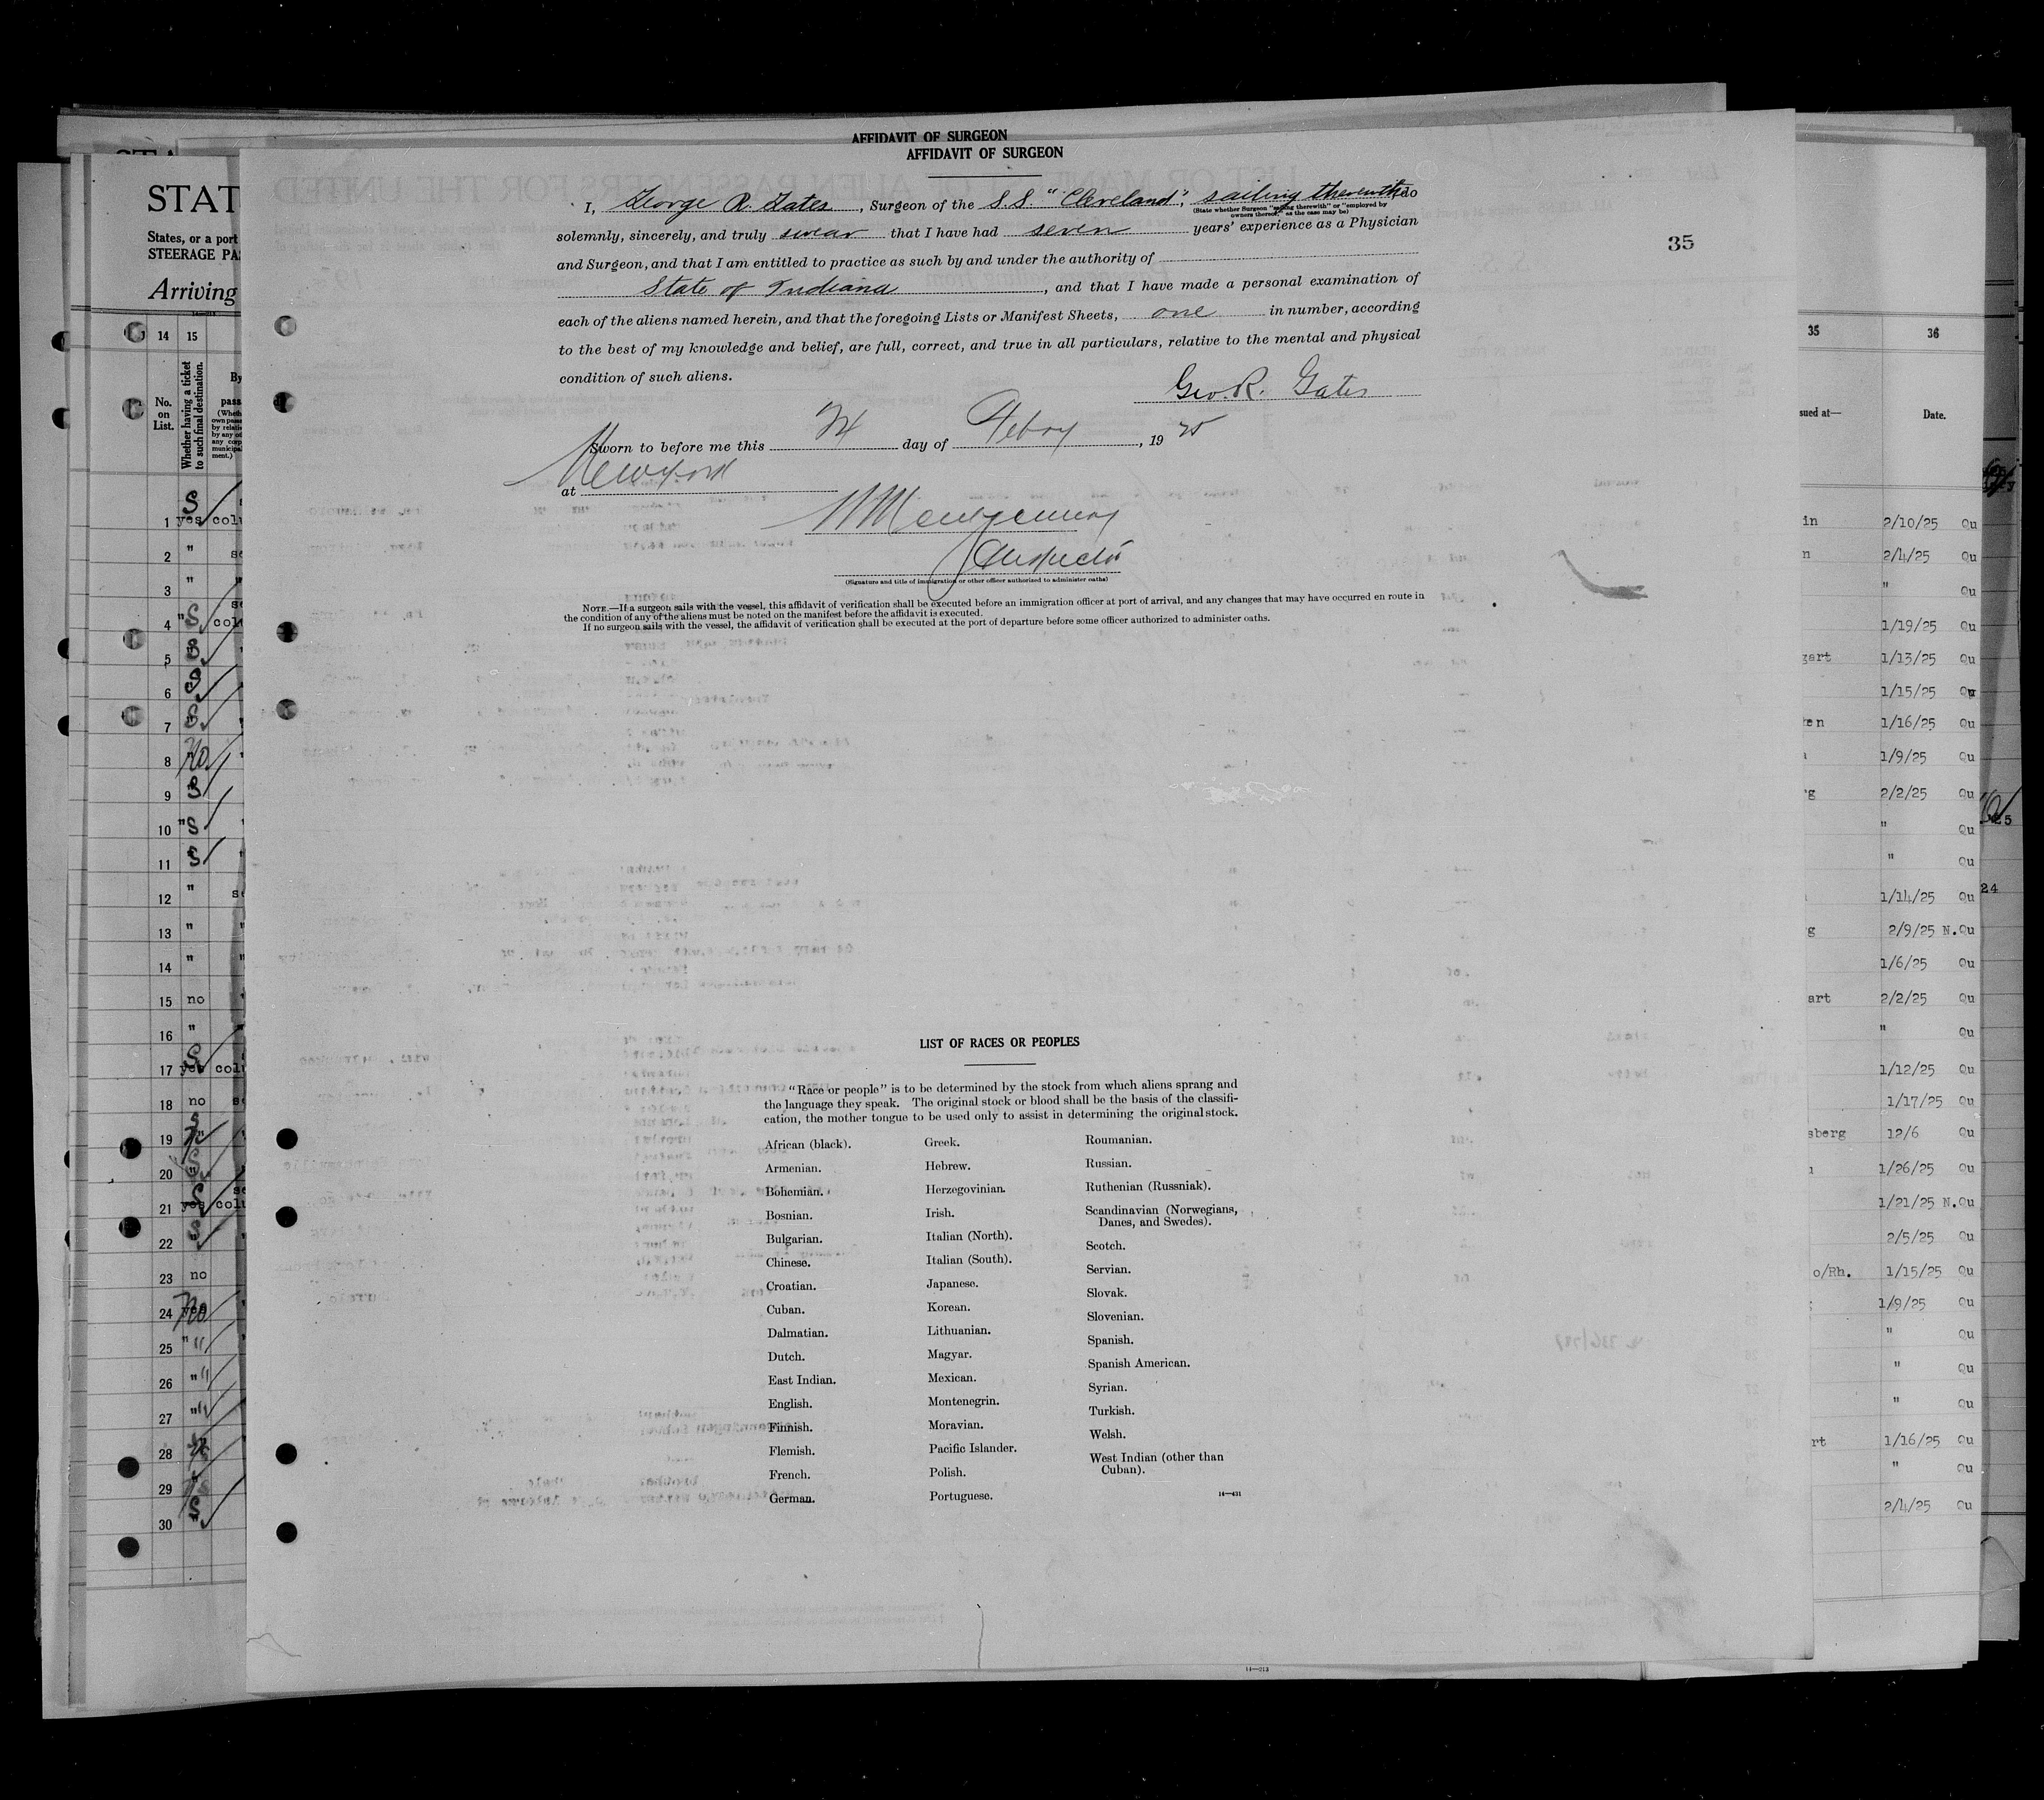 AFFIDAVIT OF SURGEON
AFFIDAVIT OF SURGEON
I, George R. Gates, Surgeon of the S.S. "Cleveland", sailing therewith do
(State whether Surgeon "sailing therewith" or "employed by
owners thereof," as the case may be)
solemnly, sincerely, and truly swear that I have had seven years' experience as a Physician
and Surgeon, and that I am entitled to practice as such by and under the authority of
State of Indiana, and that I have made a personal examination of
each of the aliens named herein, and that the foregoing Lists or Manifest Sheets, one in number, according
to the best of my knowledge and belief, are full, correct, and true in all particulars, relative to the mental and physical
condition of such aliens.
Geo. R. Gates
Sworn to before me this 24 day of Febry, 1925
at New York
Inspector
(Signature and title of immigration or other officer authorized to administer oaths)
NOTE.—If a surgeon sails with the vessel, this affidavit of verification shall be executed before an immigration officer at port of arrival, and any changes that may have occurred en route in
the condition of any of the aliens must be noted on the manifest before the affidavit is executed.
If no surgeon sails with the vessel, the affidavit of verification shall be executed at the port of departure before some officer authorized to administer oaths.
35
LIST OF RACES OR PEOPLES
"Race or people" is to be determined by the stock from which aliens sprang and
the language they speak. The original stock or blood shall be the basis of the classifi-
cation, the mother tongue to be used only to assist in determining the original stock.
African (black).
Armenian.
Bohemian.
Bosnian.
Bulgarian.
Chinese.
Croatian.
Cuban.
Dalmatian.
Dutch.
East Indian.
English.
Finnish.
Flemish.
French.
German.
Greek.
Hebrew.
Herzegovinian.
Irish.
Italian (North).
Italian (South).
Japanese.
Korean.
Lithuanian.
Magyar.
Mexican.
Montenegrin.
Moravian.
Pacific Islander.
Polish.
Portuguese.
Roumanian.
Russian.
Ruthenian (Russniak).
Scandinavian (Norwegians,
Danes, and Swedes).
Scotch.
Servian.
Slovak.
Slovenian.
Spanish.
Spanish American.
Syrian.
Turkish.
Welsh.
West Indian (other than
Cuban).
14—431
STAT
States, or a port
STEERAGE PA
Arriving
14 15
No.
on
List.
Whether having a ticket
to such final destination.
By
1 yes S
2 "
3 "
4 " S
5 S
6 S
7 S
8 No
9 S
10 " S
11 S
12 "
13 "
14 "
15 no
16 "
17 yes S
18 no
19
20 S
21 yes S
22 S
23 no
24 No
25 "
26 "
27 "
28
29
30 S
35 36
sued at— Date.
in 2/10/25 Qu
n 2/4/25 Qu
" Qu
1/19/25 Qu
gart 1/13/25 Qu
1/15/25 Qu
ten 1/16/25 Qu
1/9/25 Qu
rg 2/2/25 Qu
" Qu
" Qu
1/14/25 Qu
g 2/9/25 N.Qu
1/6/25 Qu
art 2/2/25 Qu
" Qu
1/12/25 Qu
1/17/25 Qu
sberg 12/6 Qu
1/26/25 Qu
1/21/25 N.Qu
2/5/25 Qu
o/Rh. 1/15/25 Qu
1/9/25 Qu
" Qu
" Qu
" Qu
rt 1/16/25 Qu
" Qu
2/4/25 Qu
24